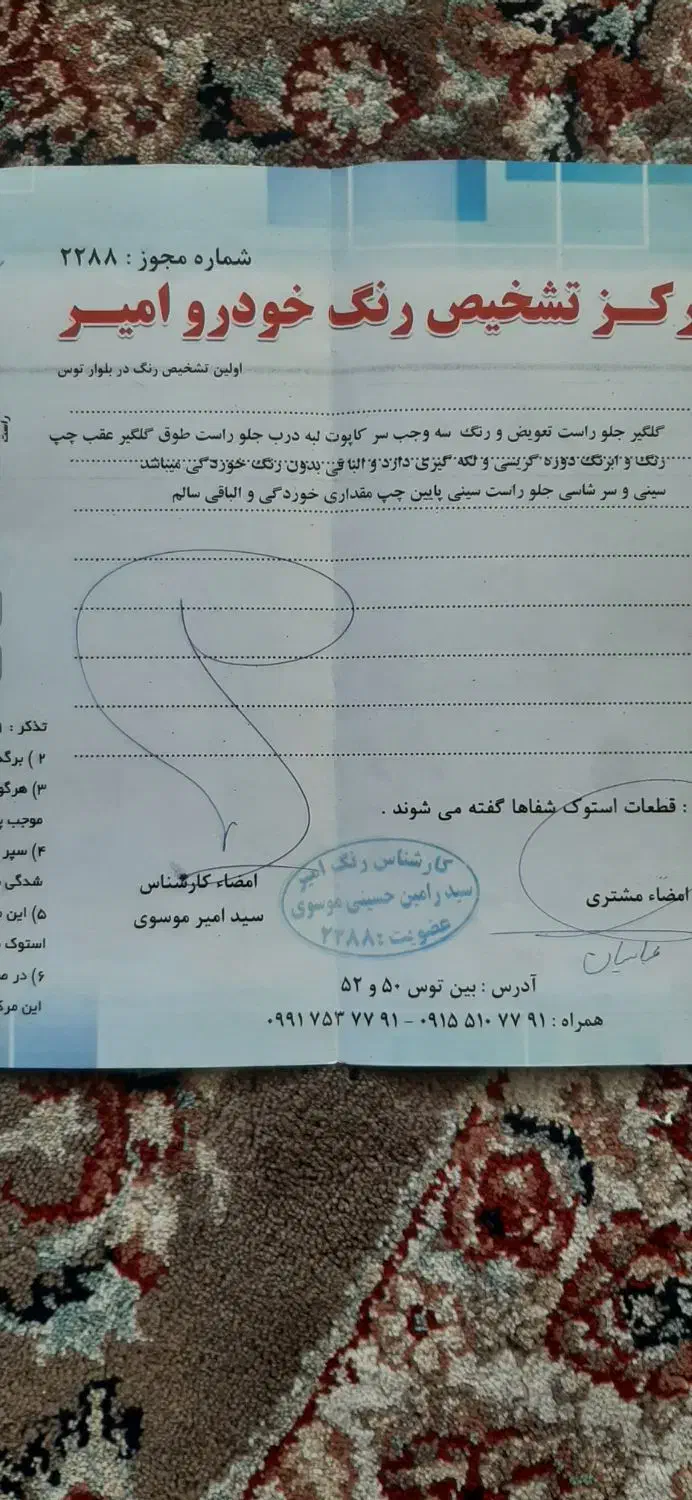 شماره مجوز : ۲۲۸۸
رکز تشخیص رنگ خودرو امیر
اولین تشخیص رنگ در بلوار توس
راست
گلگیر جلو راست تعویض و رنگ سه وجب سر کاپوت لبه درب جلو راست طوق گلگیر عقب چپ
رنگ و ابرنگ دوره گریسی و لکه گیری دارد و الباقی بدون رنگ خوردگی میباشد
سینی و سر شاسی جلو راست سینی پایین چپ مقداری خوردگی و الباقی سالم
: قطعات استوک شفاها گفته می شوند .
تذکر : ۱
۲ ) برگ
۳) هرگو
موجب
۴) سپر
شدگی
۵) این
استوک
۶) در
این مرک
امضاء کارشناس
سید امیر موسوی
کارشناس رنگ امیر
سید رامین حسینی موسوی
عضویت : ۲۲۸۸
امضاء مشتری
عباسیان
آدرس : بین توس ۵۰ و ۵۲
همراه : ۹۱ ۷۷ ۵۱۰ ۰۹۱۵ - ۹۱ ۷۷ ۷۵۳ ۰۹۹۱